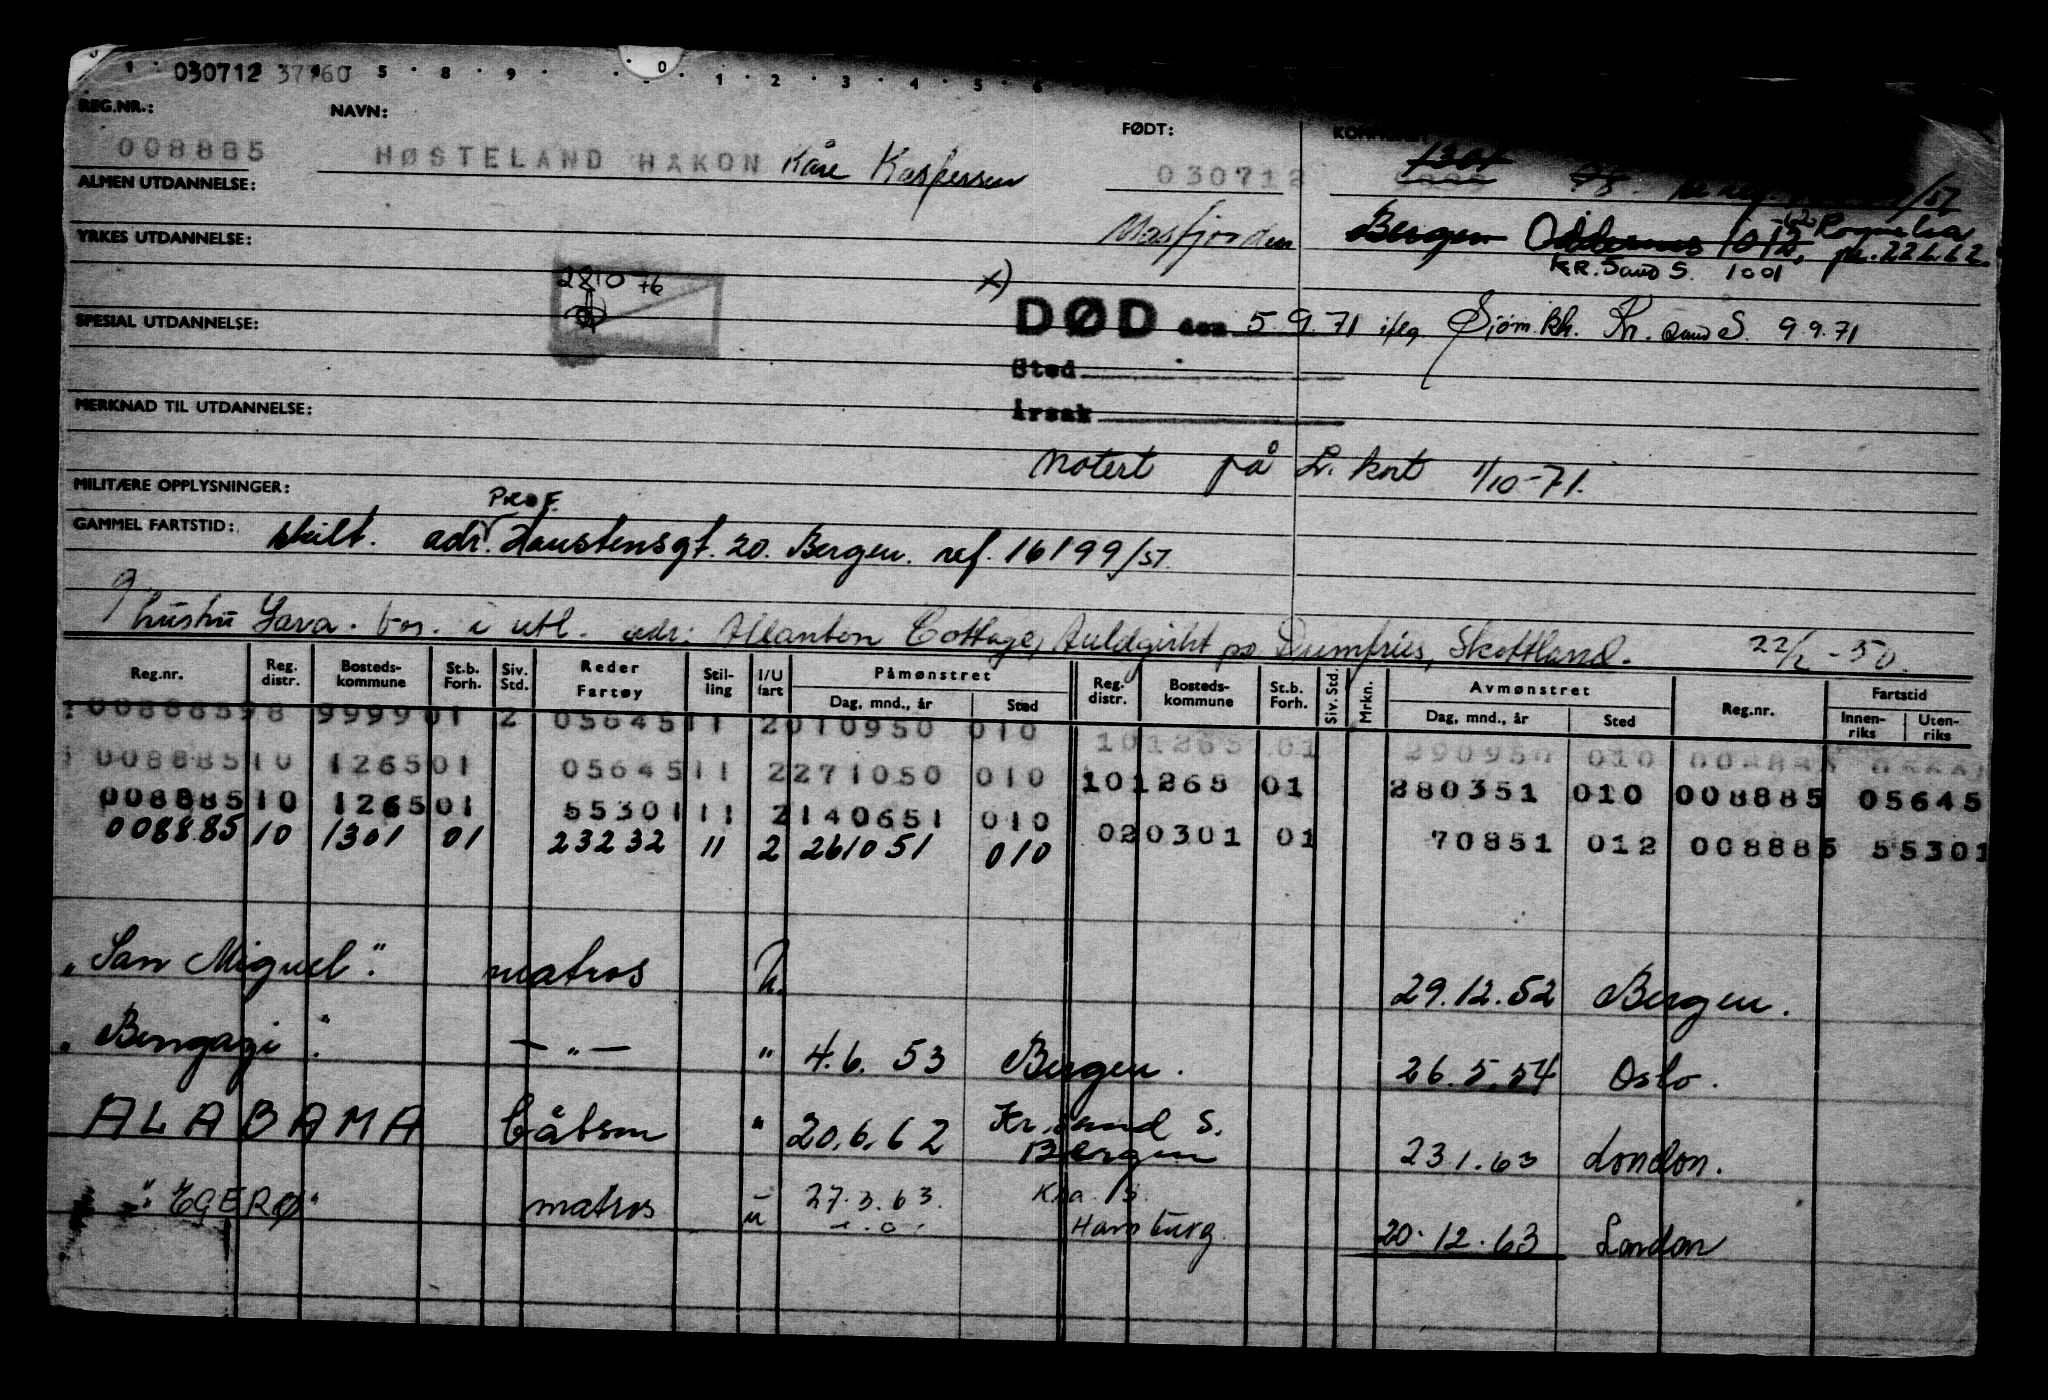 030712 37760
REG.NR.: NAVN: FØDT:
008885 HØSTELAND HAKON Kåre Kaspersen 030712 1301
ALMEN UTDANNELSE:
Masfjorden Bergen Oddernes 1012, pr. 22.6.62.
YRKES UTDANNELSE: KR. Sand S. 1001
281076 x)
SPESIAL UTDANNELSE: DØD den 5.9.71 iflg. Sjøm.kh. Kr. sand S. 9.9.71
Sted
MERKNAD TIL UTDANNELSE: Årsak
Notert på L. kort 1/10-71.
MILITÆRE OPPLYSNINGER: PROF.
GAMMEL FARTSTID: skilt. adr. Hanstensgt. 20. Bergen. ref. 16199/51.
hustru Sara. bor. i utl. adr: Allanton Cottage, Auldgirht pr Dumfries, Skottland. 22/2-50.
Reg.nr. Reg. distr. Bosteds-kommune St.b. Forh. Siv. Std. Reder Fartøy Stil-ling I/U fart Påmønstret Dag, mnd., år Sted Reg. distr. Bosteds-kommune St.b. Forh. Siv. Std. Mrkn. Avmønstret Dag, mnd., år Sted Reg.nr. Fartstid Innen-riks Uten-riks
00888598 999901 2 0564511 2010950 010 101265 01 290950 010
00888510 126501 0564511 2271050 010 101265 01 280351 010 008885 05645
00888510 126501 5530111 2140651 010 020301 01 70851 012 008885 55301
008885 10 1301 01 23232 11 2 261051 010
"San Miguel". matros U. 29.12.52 Bergen.
"Bengazi". — " — " 4.6.53 Bergen. 26.5.54 Oslo.
ALABAMA båtsm " 20.6.62 Kr.sand S. Bergen 23 1.63 London.
"EGERØ" matros u 27.3.63. Kra. S. Hamburg. 20.12.63 London